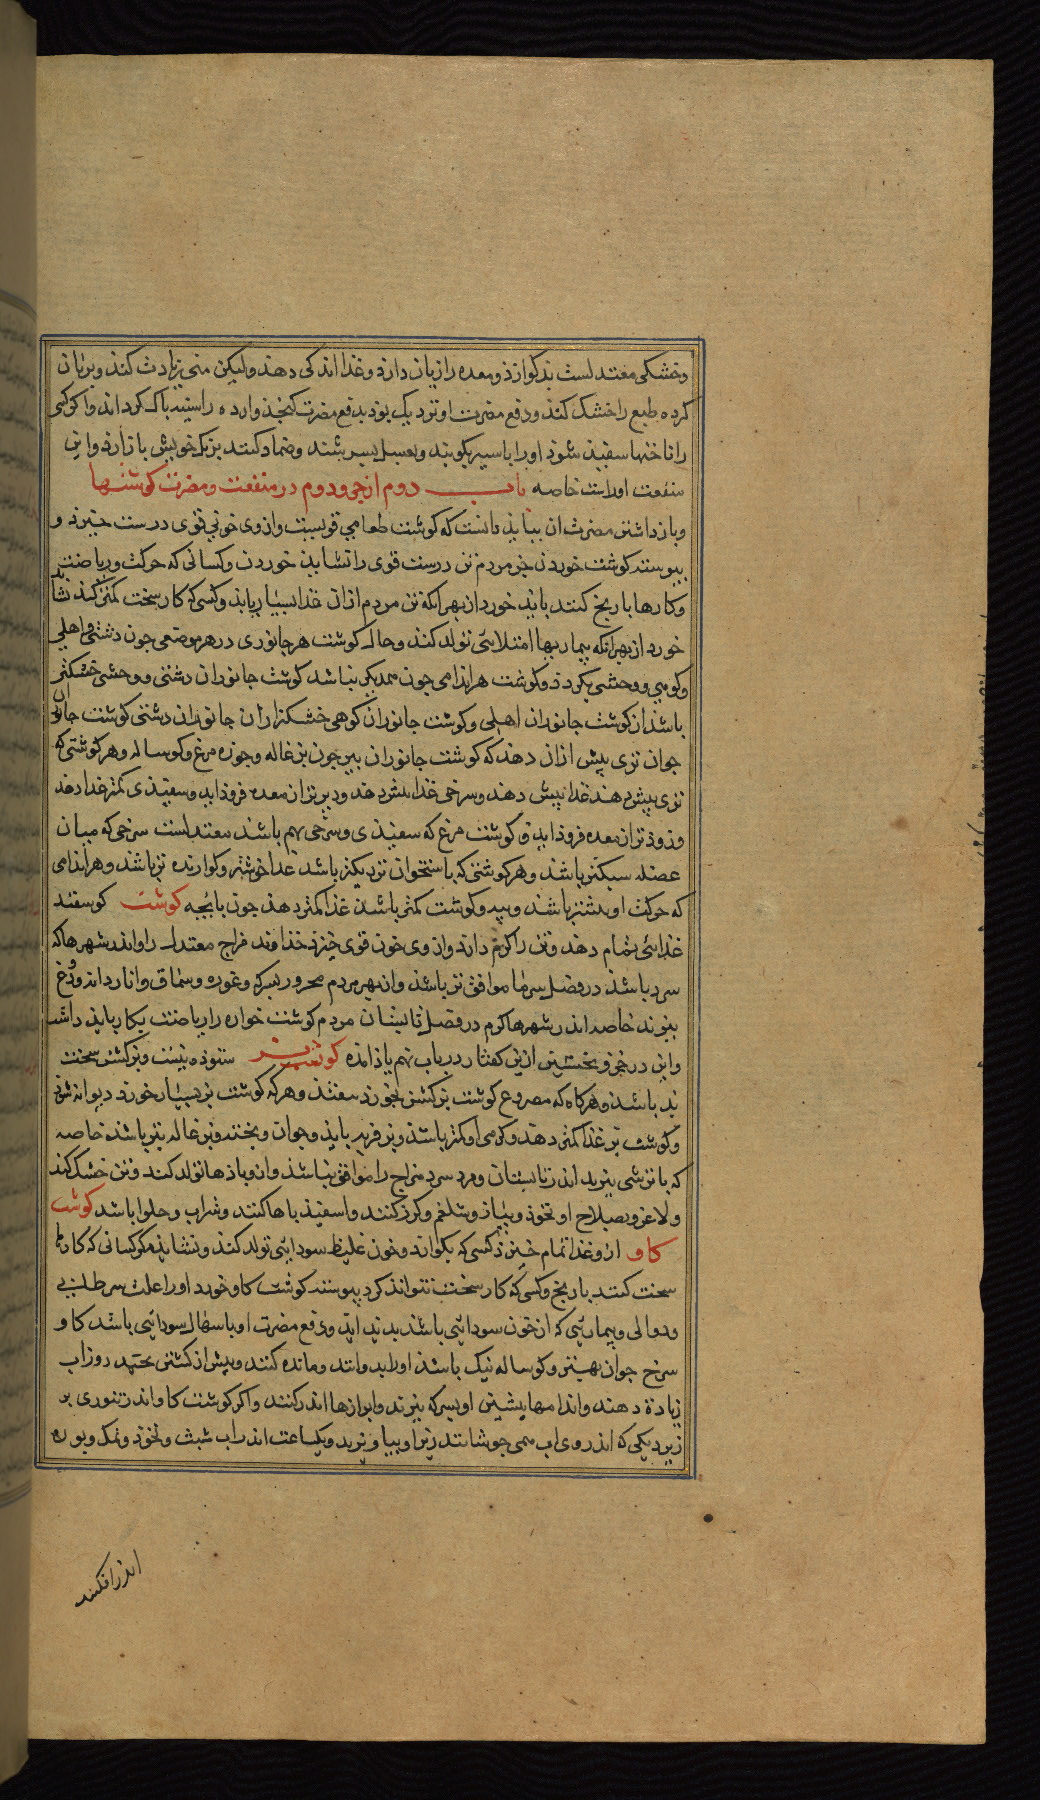 وخشکی معتدلست بد کوارذ ومعده را زیان دارذ وغذا اندکی دهذ ولیکن منی زیادت کنذ وبریان
کرده طبع را خشک کنذ ودفع مضرت او نزدیک بوذ بدفع مضرت کنجذ وارده را سینه پاک کرداند واکر کسی
را ناخنها سفید شوذ اورا با سیر بکوبند وبعسل بسرشند وضماد کنند بزنک خویش باز آرذ واین
منفعت اوراست خاصه باب دوم از جزو دوم در منفعت ومضرت کوشتها
وبازداشتن مضرت آن بباید دانست که کوشت طعامی قویست واز وی خونی قوی درست خیزذ و
پیوسته کوشت خوردن جز مردم تن درست قوی را نشایذ خوردن وکسانی که حرکت وریاضت
وکارها با رنج کنند بایذ خورد از بهر آنکه تن مردم ازان غذا بسیار یابذ وکسی که کار سخت کمتر کند نشاید
خورد از بهر آنکه بیماریها امتلائی تولد کنذ وحال کوشت هر جانوری در هر موضعی چون دشتی واهلی
وکوهی ووحشی بکردذ وکوشت هر اندامی چون همدیکر نباشد کوشت جانوران دشتی ووحشی خشکتر
باشذ از کوشت جانوران اهلی وکوشت جانوران کوهی خشکتر ازان جانوران دشتی کوشت جانوران
جوان تری بیش ازان دهذ که کوشت جانوران پیر چون بزغاله وجوزه مرغ وکوساله وهر کوشتی که
تری بیش دهذ غذا بیش دهذ وسرخی غذا بیشتر دهذ ودیرتر از معده فروذ آید وسفیذی کمتر غذا دهذ
وزوذتر از معده فروذ آید وکوشت مرغ که سفیذی وسرخی بهم باشد معتدلست سرخی که میان
عضله سبکتر باشذ وهر کوشتی که باستخوان نزدیکتر باشذ غذا خوشتر وکوارنده تر باشذ وهر اندامی
که حرکت او بیشتر باشذ وپیه وکوشت کمتر باشذ غذا کمتر دهذ چون پایچه کوشت کوسفند
غذائی تمام دهذ وتن را کرم دارذ واز وی خون قوی خیزذ خذاوند مزاج معتدل را واندر شهرها که
سرد باشذ در فصل سرما موافق تر باشذ واز بهر مردم محرور بسرکه وغوره وسماق وانار دانه ودوغ
پزند خاصه اندر شهرها کرم در فصل تابستان مردم کوشت خواره را ریاضت بکار باید داشت
واین در جزو نخستین ازین کفتار در باب نهم یاذ آمده کوشت بز ستوده نیست وبز کشن سخت
بد باشذ وهرکاه که مصروع کوشت بز کشن بخورذ بیفتذ وهر که کوشت بز بسیار خورد دیوانه شوذ
وکوشت بز غذا کمتر دهذ وکرمی او کمتر باشذ وبز فربه باید وجوان وپخته وبزغاله بهتر باشذ خاصه
که با ترشی پزند اندر تابستان ومرد سرد مزاج را موافق نباشذ وازو باذها تولد کند وتن خشک کند
ولاغر وبصلاح او نخوذ وپیاز وشلغم وکرز کنند واسفیذباها کنند وشراب وحلوا باشد کوشت
کاو ازو غذا تمام خیزذ کسی که بکوارذ وخون غلیظ سودائی تولد کنذ ونشاید مکر کسانی که کارها
سخت کنند با رنج وکسی که کار سخت نتواند کرد پیوسته کوشت کاو خورد اورا علت سرطان
ودوالی وبیماریی که از خون سودائی باشذ بدید آید ودفع مضرت او باسهال سودائی باشد کاو
سرخ جوان بهتر وکوساله نیک باشذ اورا بدوانند ومانده کنند وپیش از کشتن چند روز آب
زیادة دهند واندامها پیشین او بسرکه پزند وابزارها اندر کنند واکر کوشت کاو اندر تنوری بر
زبر دیکی که اندر وی آب همی جوشانند زیر او بیاویزند ویکساعت اندر آب شبث ونخوذ ونمک وبوره
اندر افکنند